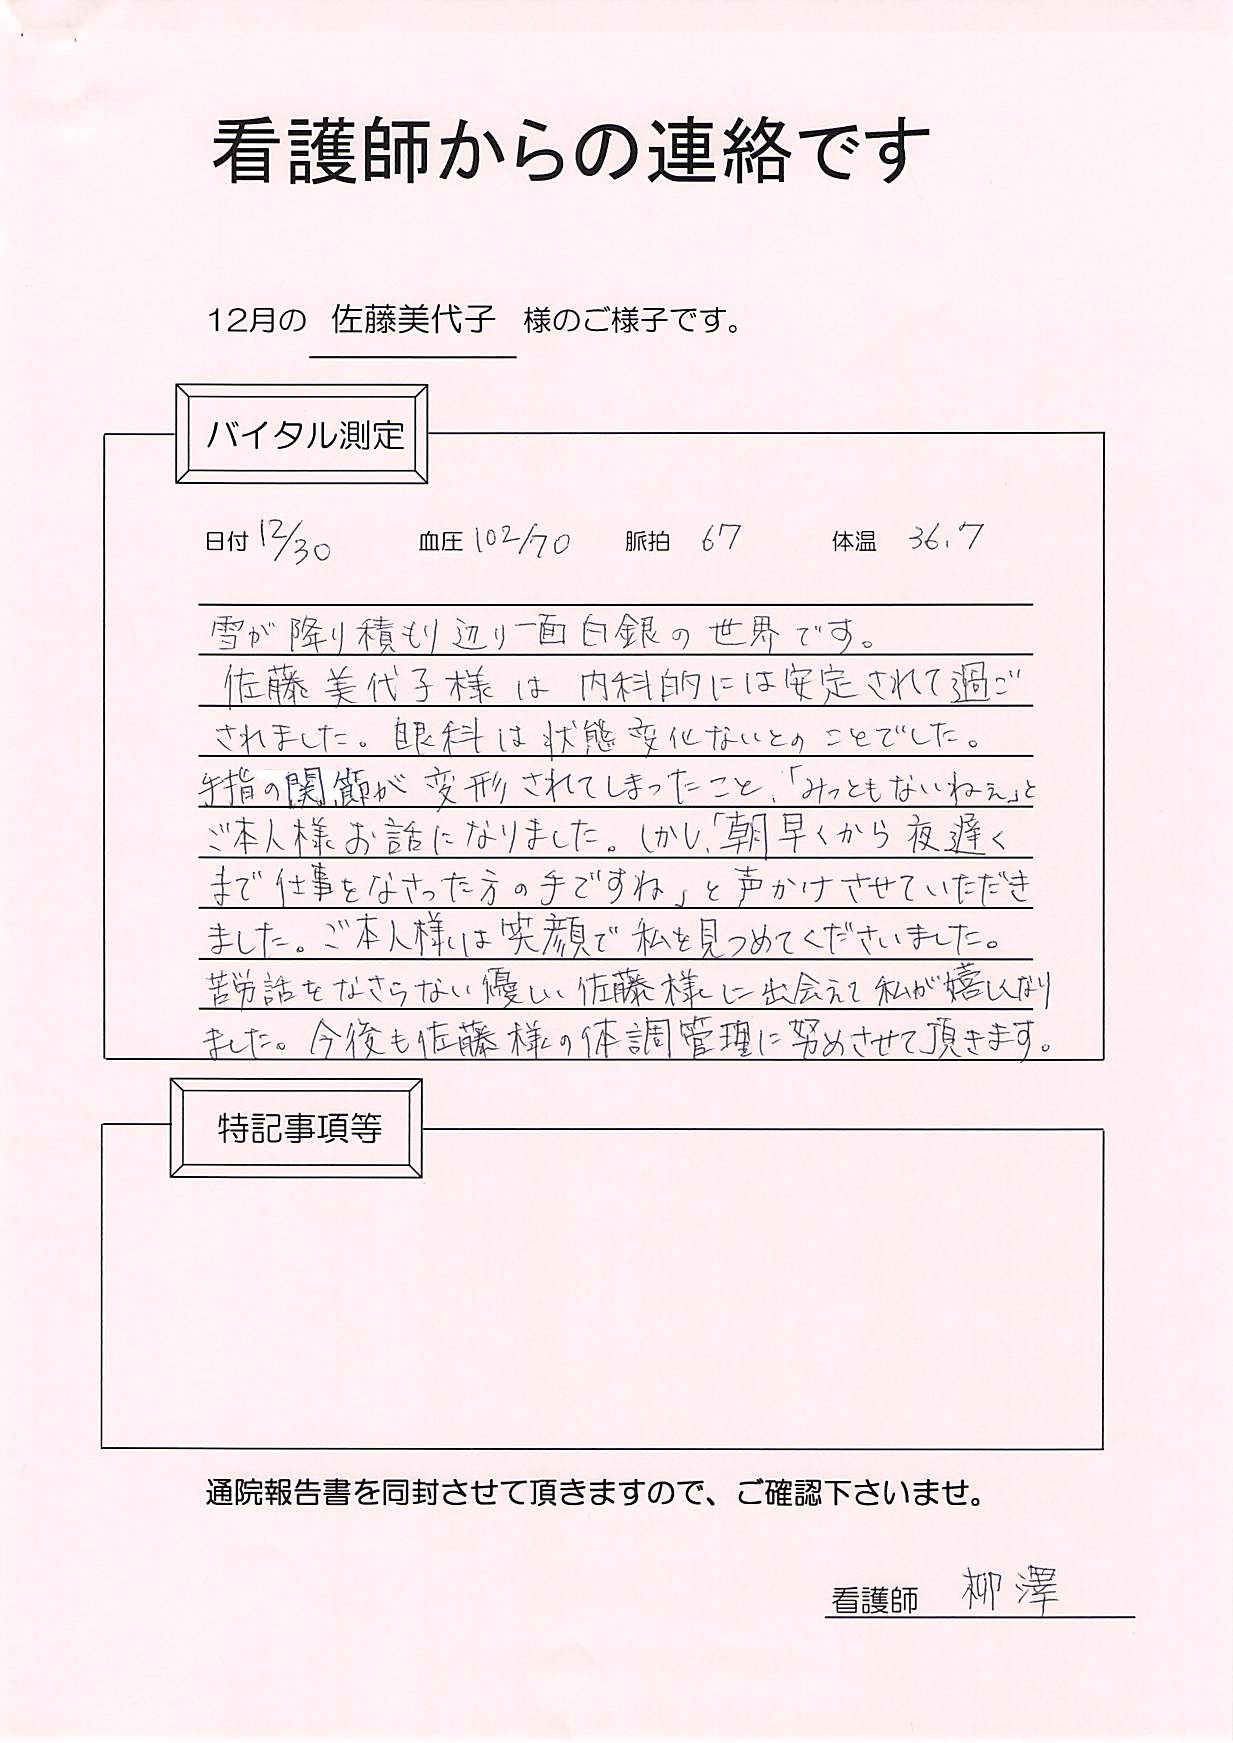 看護師からの連絡です
12月の 佐藤美代子 様のご様子です。
バイタル測定
日付 12/30 血圧 102/70 脈拍 67 体温 36.7
雪が降り積もり辺り一面白銀の世界です。
佐藤美代子様は内科的には安定されて過ご
されました。眼科は状態変化ないとのことでした。
手指の関節が変形されてしまったこと、「みっともないねぇ」と
ご本人様お話になりました。しかし、「朝早くから夜遅く
まで仕事をなさった方の手ですね」と声かけさせていただき
ました。ご本人様は笑顔で私を見つめてくださいました。
苦労話をなさらない優しい佐藤様に出会えて私が嬉しくなり
ました。今後も佐藤様の体調管理に努めさせて頂きます。
特記事項等
通院報告書を同封させて頂きますので、ご確認下さいませ。
看護師 柳澤